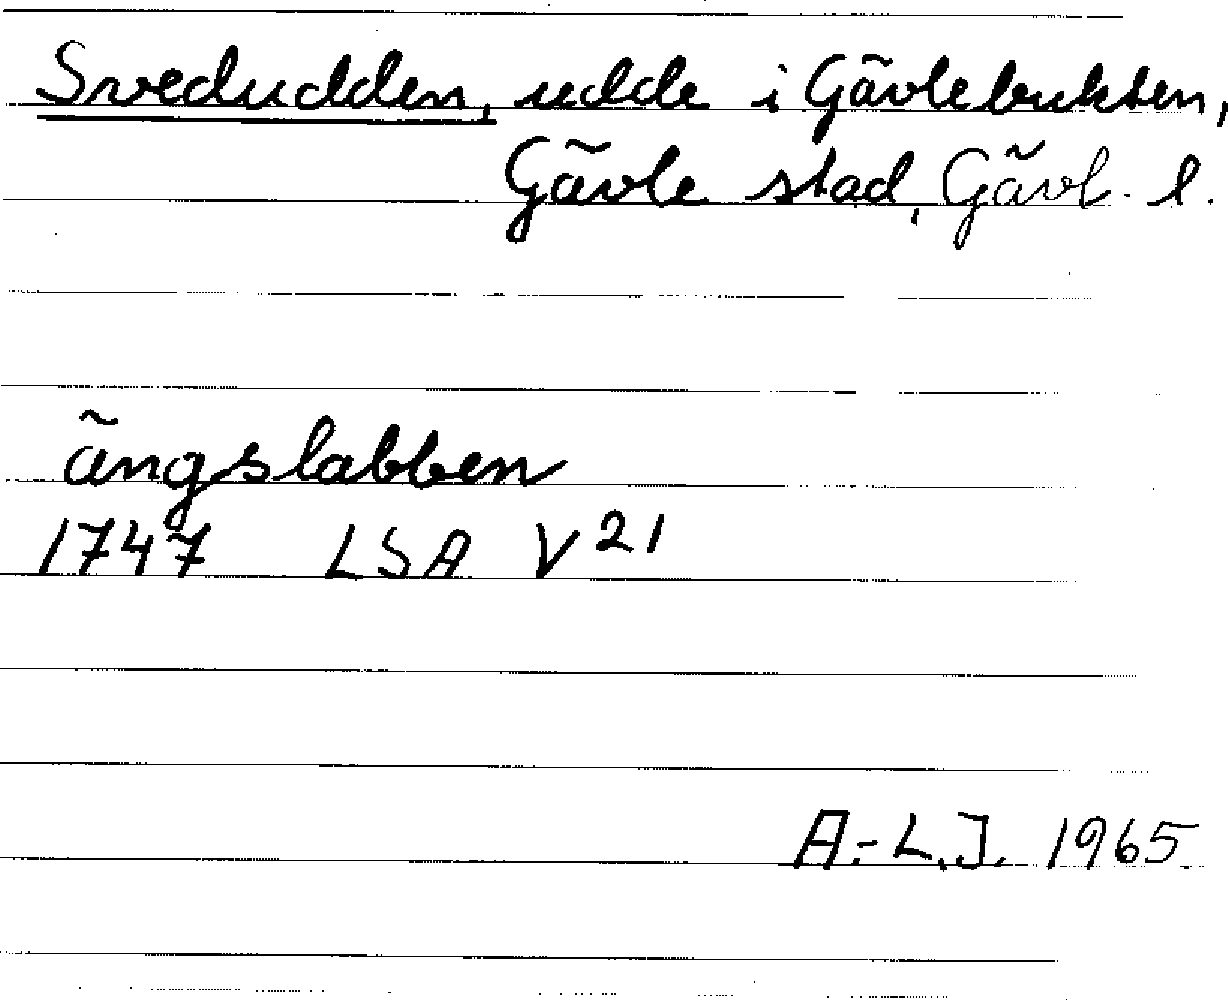 Svedudden, udde i Gävlebukten,
Gävle stad, Gävl. l.
ängslabben
1747 LSA V 21
A.-L.J. 1965